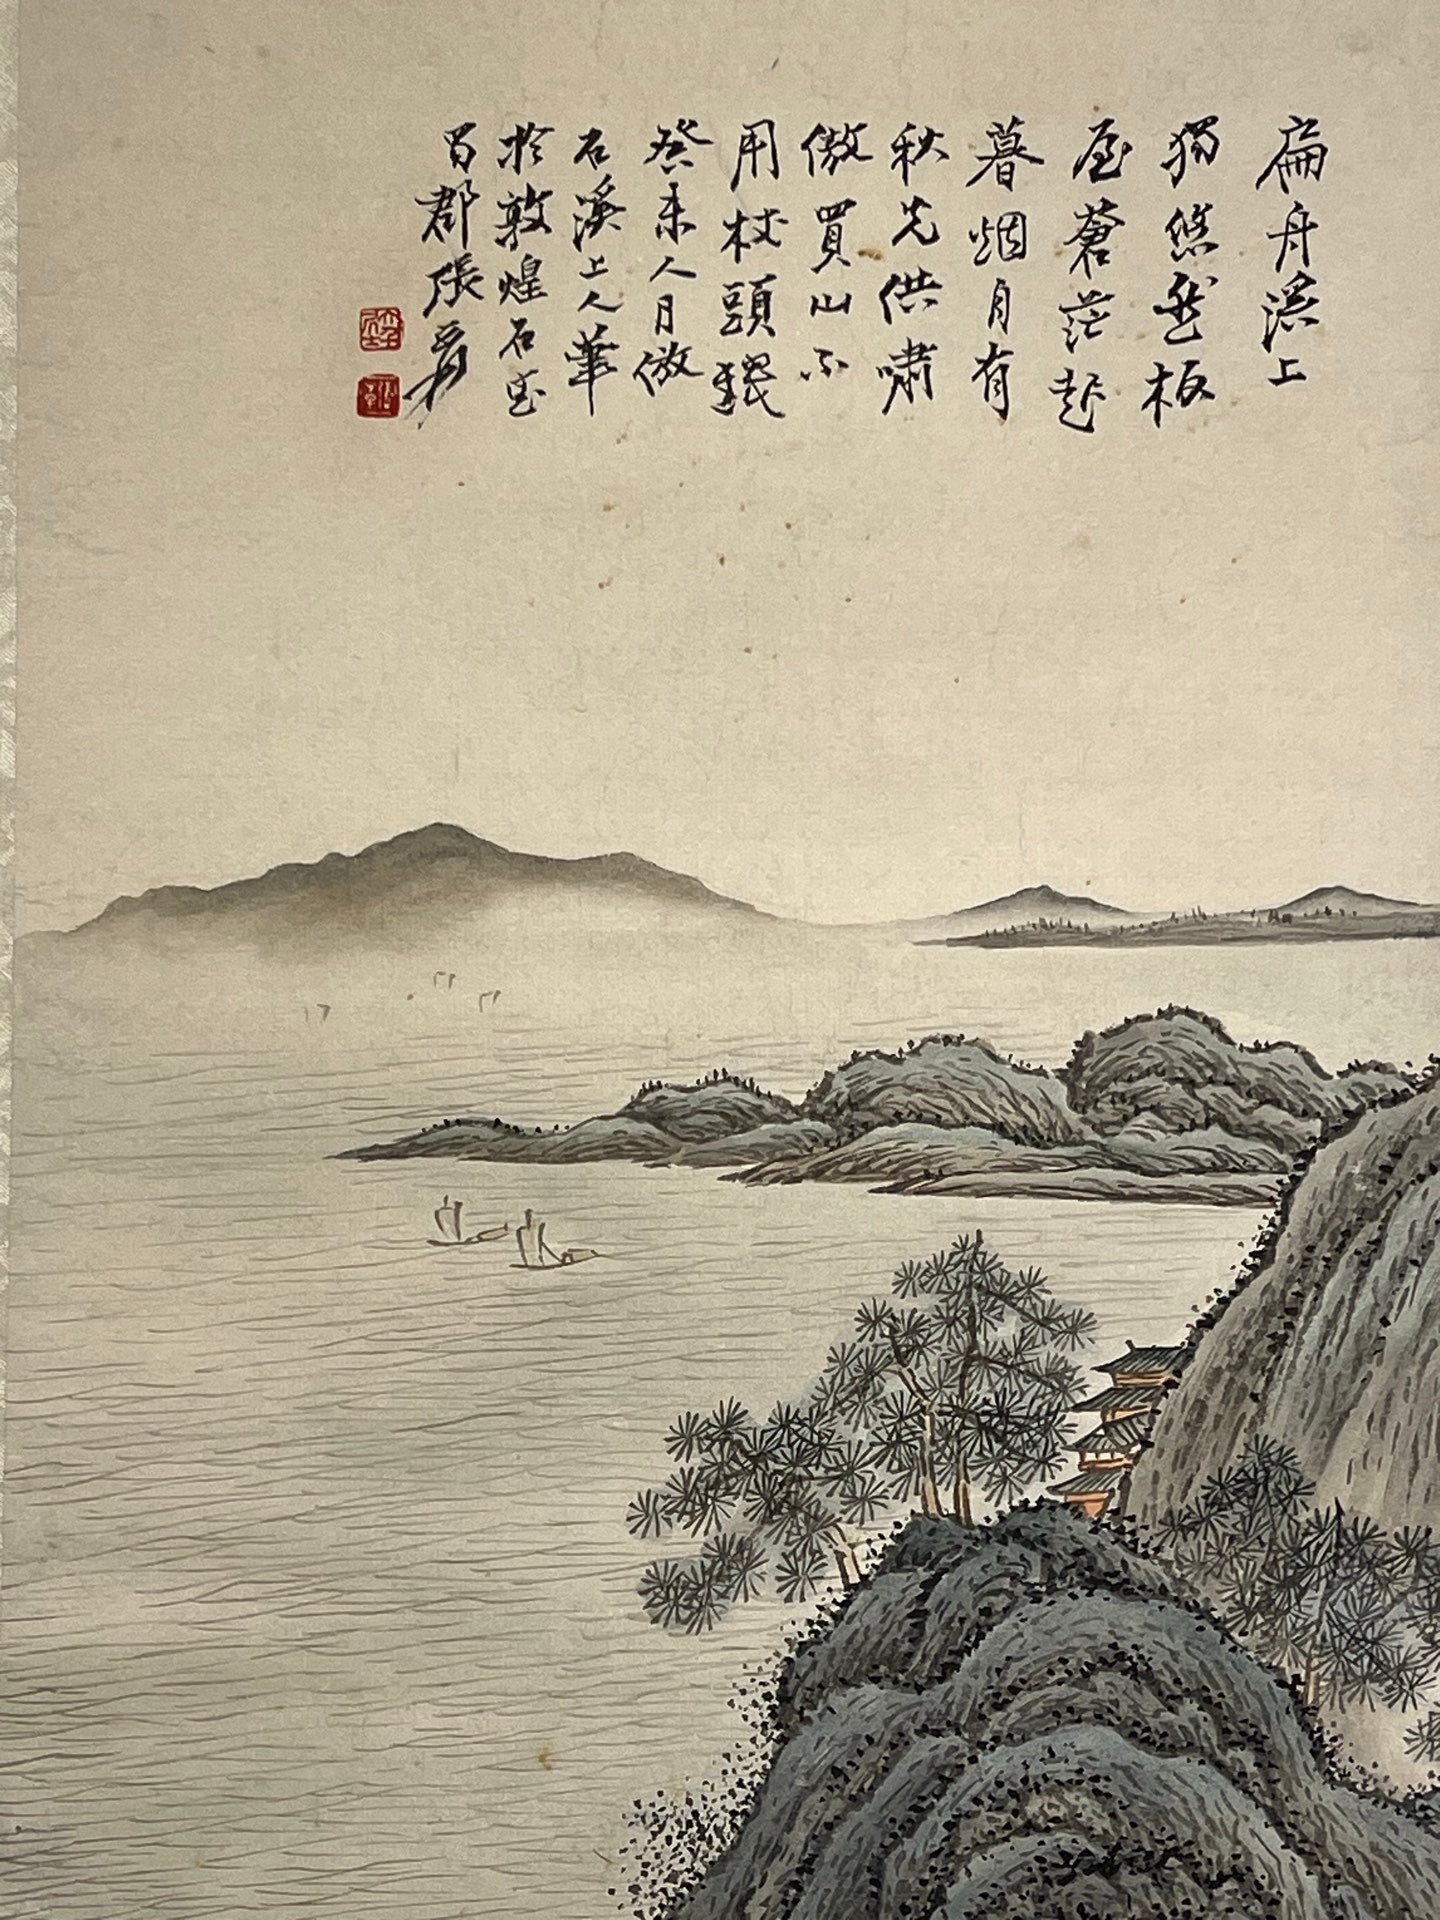 扁舟溪上
獨悠然板
屋蒼茫起
暮烟自有
秋光供嘯
傲買山不
用杖頭錢
癸未人日倣
石溪上人筆
於敦煌石室
蜀郡張爰